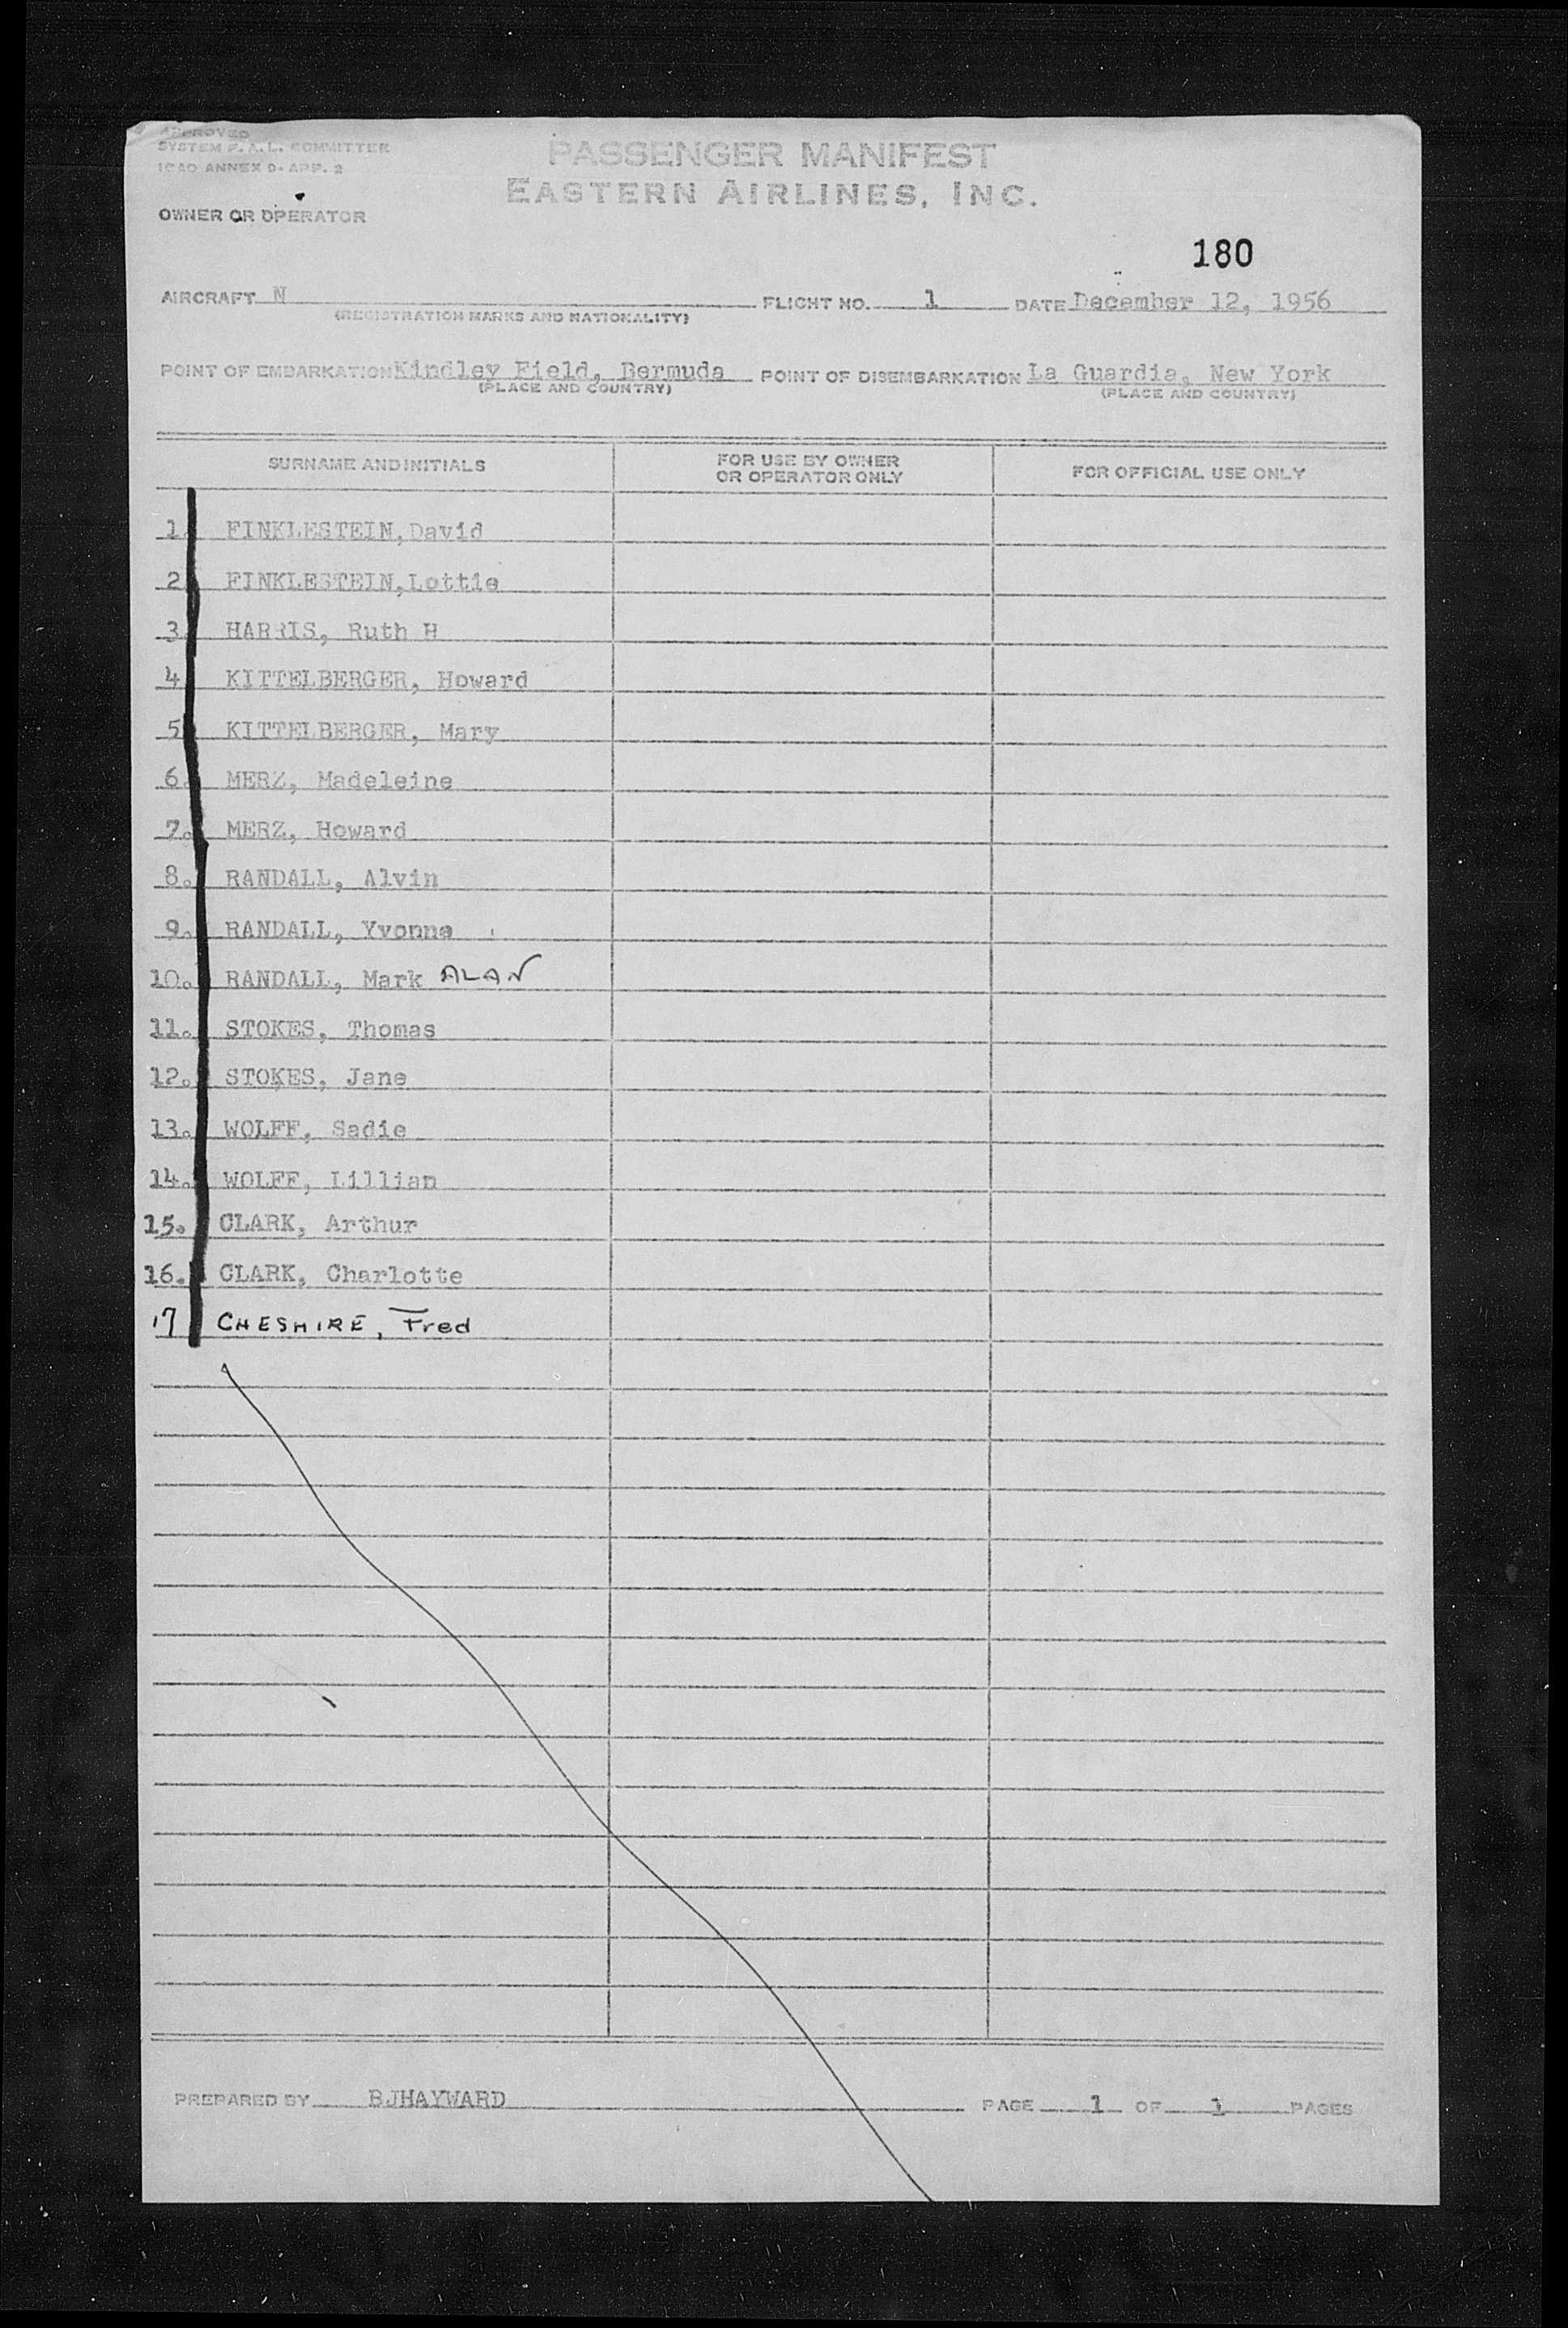 APPROVED
SYSTEM F.A.L. COMMITTEE
ICAO ANNEX 9-APP. 2
PASSENGER MANIFEST
EASTERN AIRLINES, INC.
OWNER OR OPERATOR
180
AIRCRAFT N FLIGHT NO. 1 DATE December 12, 1956
(REGISTRATION MARKS AND NATIONALITY)
POINT OF EMBARKATION Kindley Field, Bermuda POINT OF DISEMBARKATION La Guardia, New York
(PLACE AND COUNTRY) (PLACE AND COUNTRY)
SURNAME AND INITIALS FOR USE BY OWNER OR OPERATOR ONLY FOR OFFICIAL USE ONLY
1. FINKLESTEIN, David
2. FINKLESTEIN, Lottie
3. HARRIS, Ruth H
4. KITTELBERGER, Howard
5. KITTELBERGER, Mary
6. MERZ, Madeleine
7. MERZ, Howard
8. RANDALL, Alvin
9. RANDALL, Yvonne
10. RANDALL, Mark ALAN
11. STOKES, Thomas
12. STOKES, Jane
13. WOLFF, Sadie
14. WOLFF, Lillian
15. CLARK, Arthur
16. CLARK, Charlotte
17 CHESHIRE, Fred
PREPARED BY BJHAYWARD PAGE 1 OF 1 PAGES